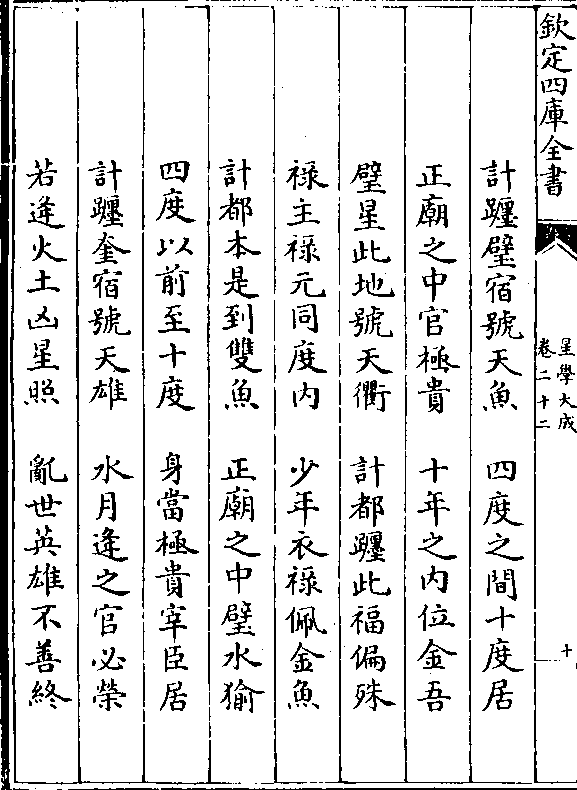 欽定四庫全書
星學大成
卷二十二
十
計躔璧宿號天魚 四度之間十度居
正廟之中官極貴 十年之內位金吾
璧星此地號天衢 計都躔此福偏殊
祿主祿元同度內 少年衣祿佩金魚
計都本是到雙魚 正廟之中璧水㺄
四度以前至十度 身當極貴宰臣居
計躔奎宿號天雄 水月逢之官必榮
若逢火土凶星照 亂世英雄不善終